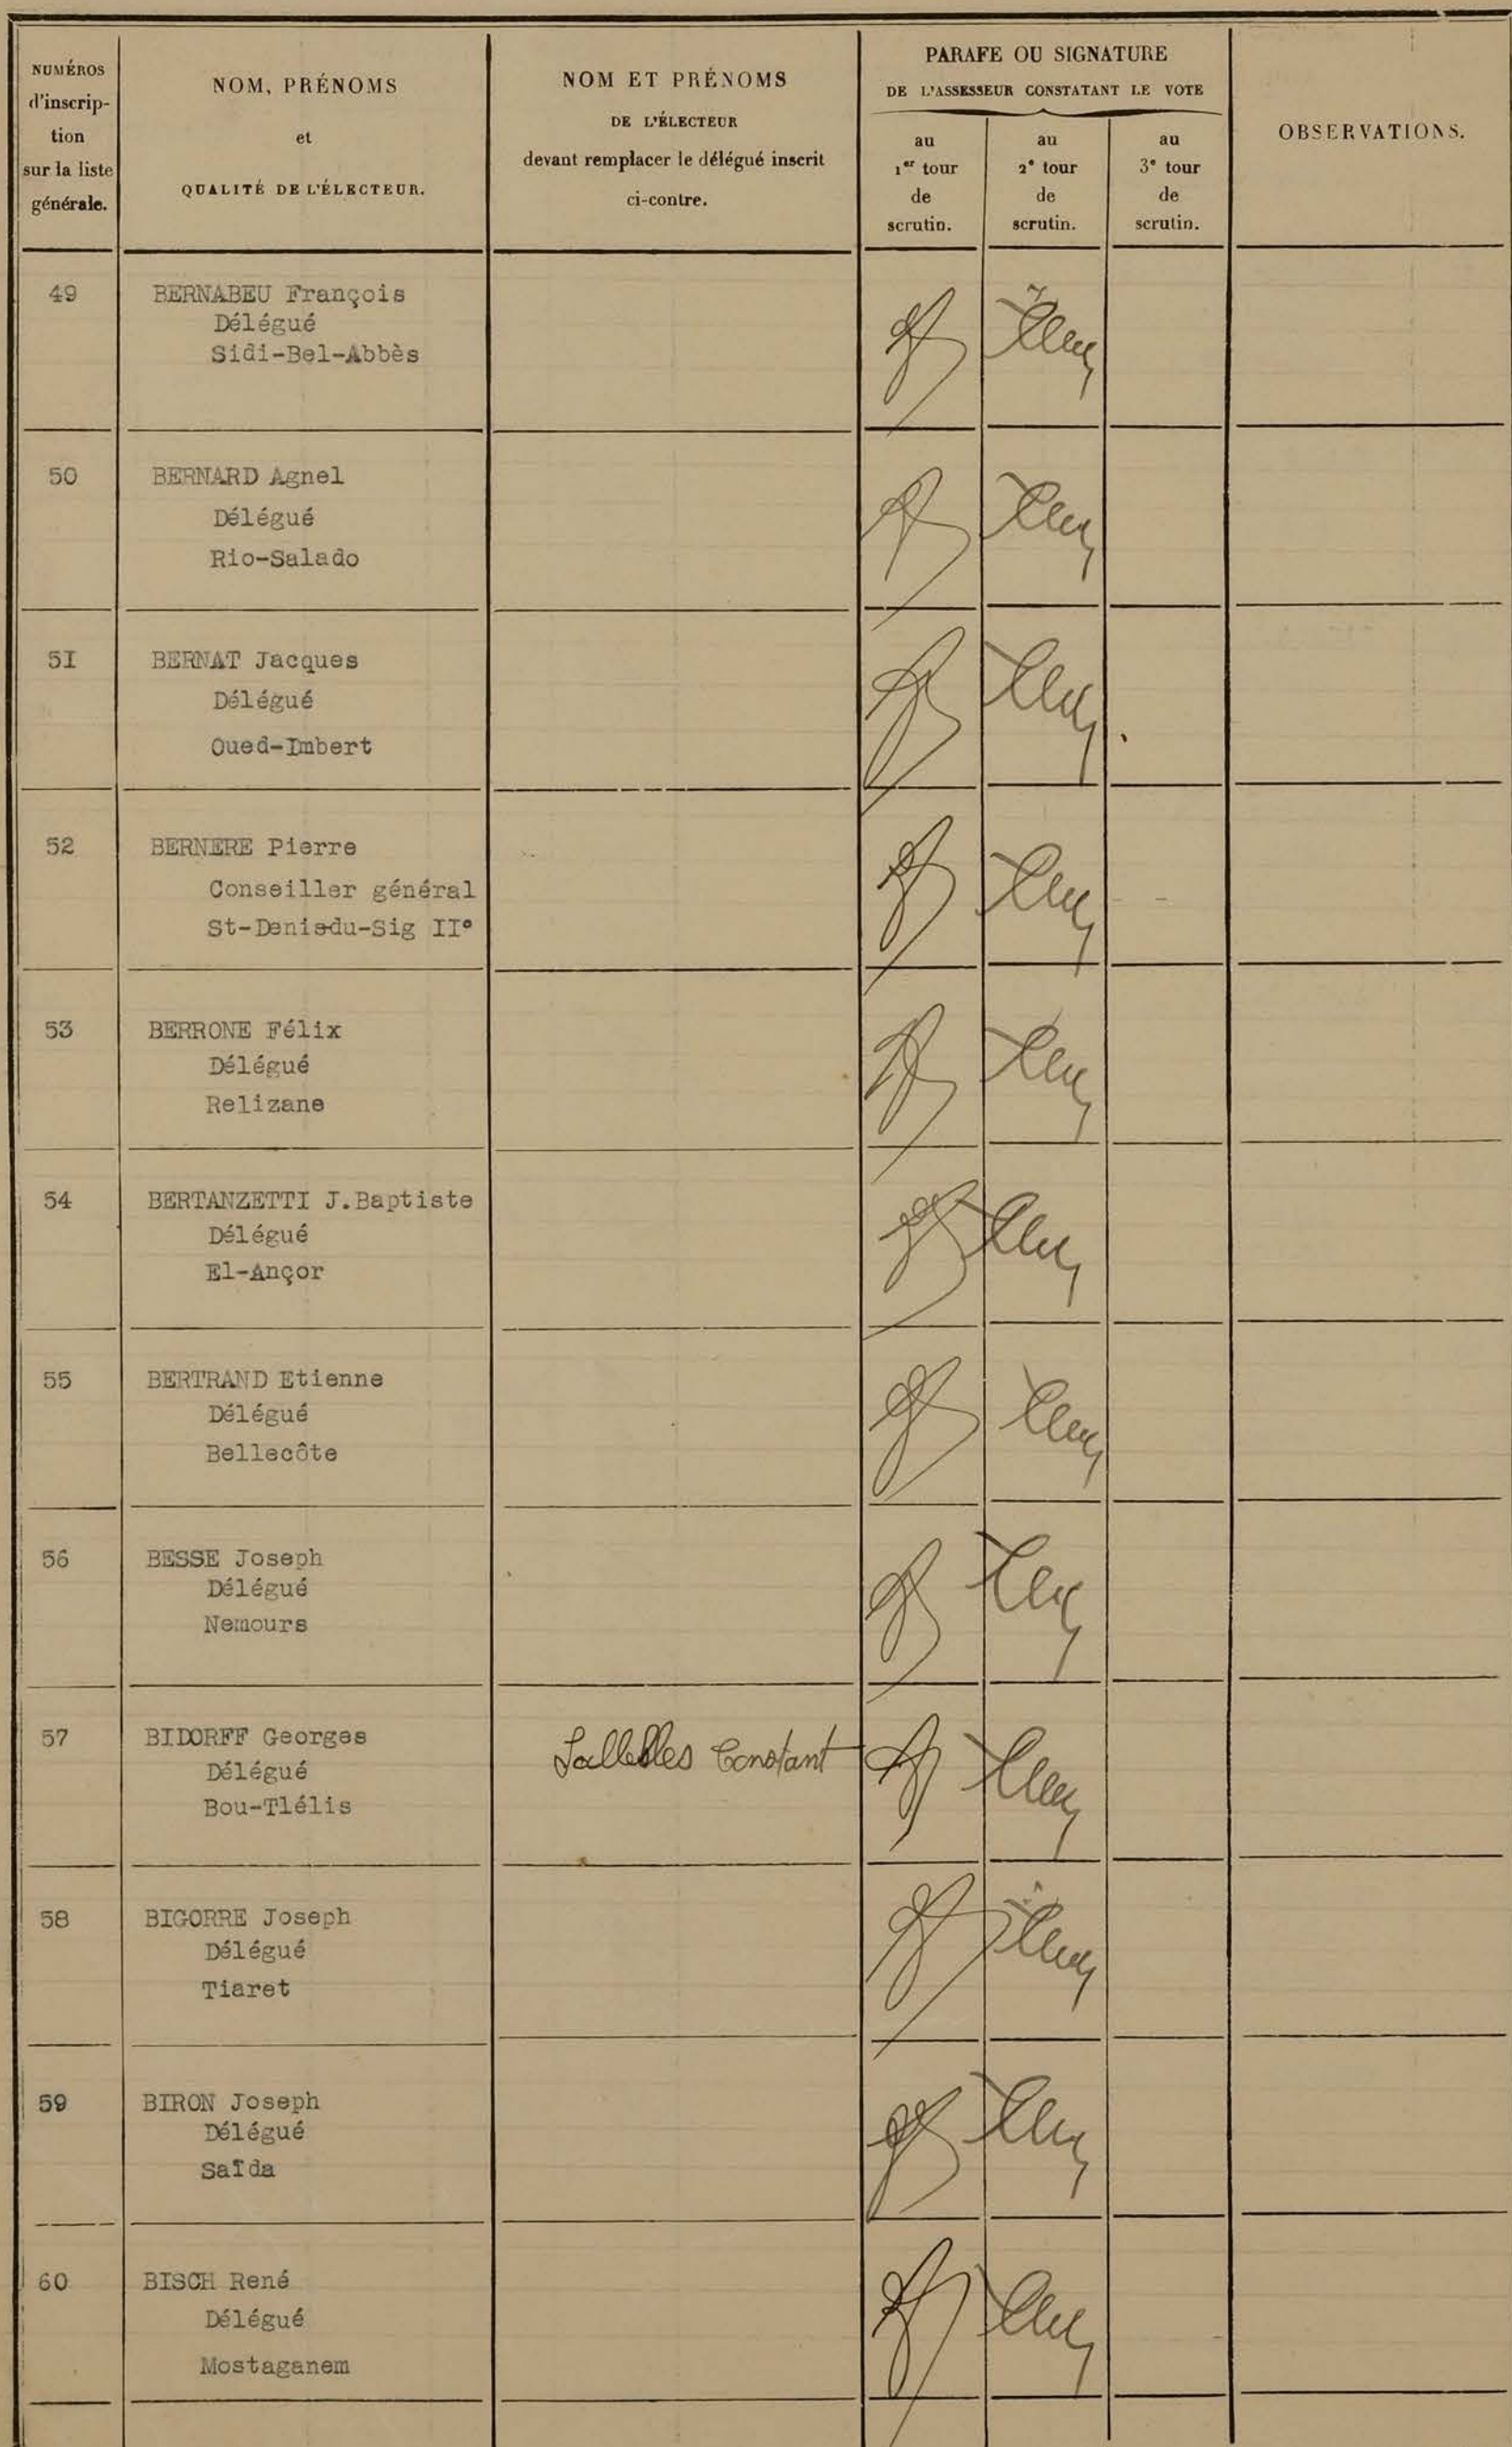 NUMÉROS
d'inscrip-
tion
sur la liste
générale.
NOM, PRÉNOMS
et
QUALITÉ DE L'ÉLECTEUR.
NOM ET PRÉNOMS
DE L'ÉLECTEUR
devant remplacer le délégué inscrit
ci-contre.
PARAFE OU SIGNATURE
DE L'ASSESSEUR CONSTATANT LE VOTE
au
1er tour
de
scrutin.
au
2e tour
de
scrutin.
au
3e tour
de
scrutin.
OBSERVATIONS.
49 BERNABEU François
Délégué
Sidi-Bel-Abbès
50 BERNARD Agnel
Délégué
Rio-Salado
5I BERNAT Jacques
Délégué
Oued-Imbert
52 BERNERE Pierre
Conseiller général
St-Denis-du-Sig II°
53 BERRONE Félix
Délégué
Relizane
54 BERTANZETTI J.Baptiste
Délégué
El-Ançor
55 BERTRAND Etienne
Délégué
Bellecôte
56 BESSE Joseph
Délégué
Nemours
57 BIDORFF Georges Constant
Délégué
Bou-Tlélis
58 BIGORRE Joseph
Délégué
Tiaret
59 BIRON Joseph
Délégué
Saïda
60 BISCH René
Délégué
Mostaganem